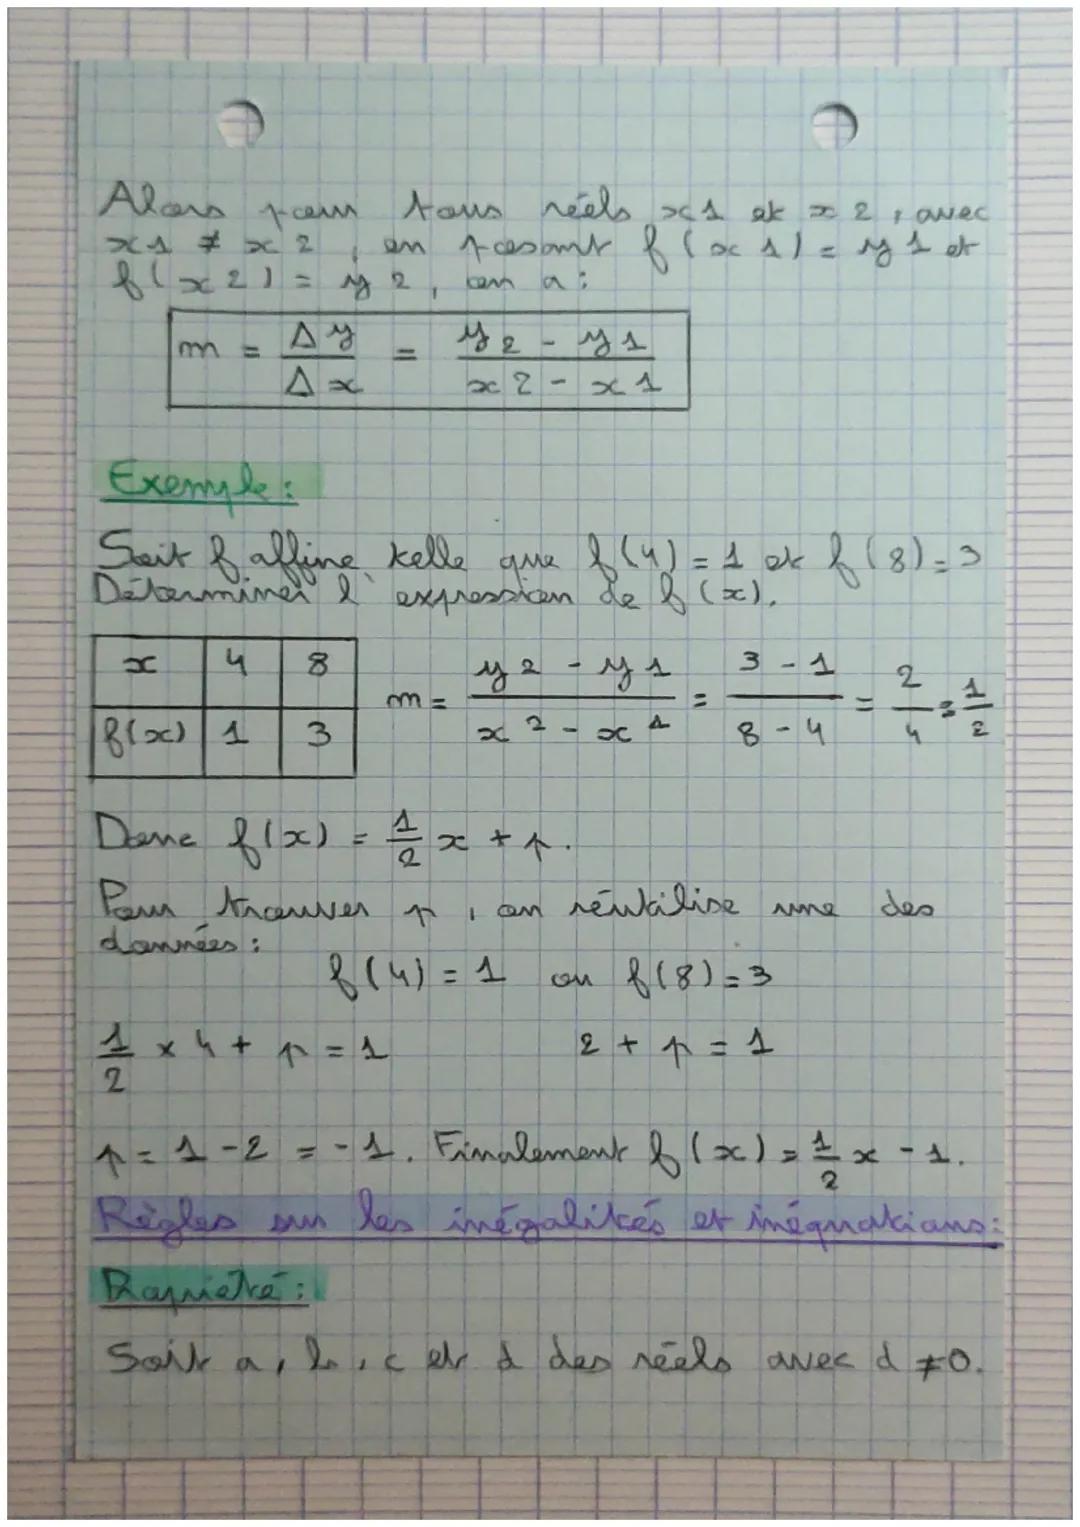 Alors pour tous réels x1 et x2, avec
x1 ≠ x2, en posant f(x1) = y1 et
f(x2) = y2, on a :
m = Δy / Δx = y2 - y1 / x2 - x1
Exemple :
Soit f affine telle que f(4) = 1 et f(8) = 3
Déterminer l'expression de f(x).
x 4 8
f(x) 1 3
m = y2 - y1 / x2 - x1 = 3 - 1 / 8 - 4 = 2/4 = 1/2
Donc f(x) = 1/2 x + p.
Pour trouver p, on réutilise une des
données :
f(4) = 1 ou f(8) = 3
1/2 × 4 + p = 1 2 + p = 1
p = 1 - 2 = -1. Finalement f(x) = 1/2 x - 1.
Règles sur les inégalités et inéquations :
Propriété :
Soit a, b, c et d des réels avec d ≠ 0.